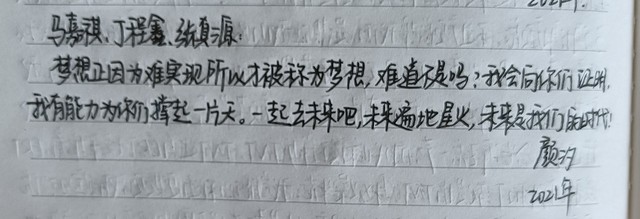 2021年
马嘉祺、丁程鑫、张真源:
梦想正因为难实现所以才被称为梦想,难道不是吗?我会向你们证明,
我有能力为你们撑起一片天。一起去未来吧,未来遍地星火,未来是我们的时代!
颜汐
2021年